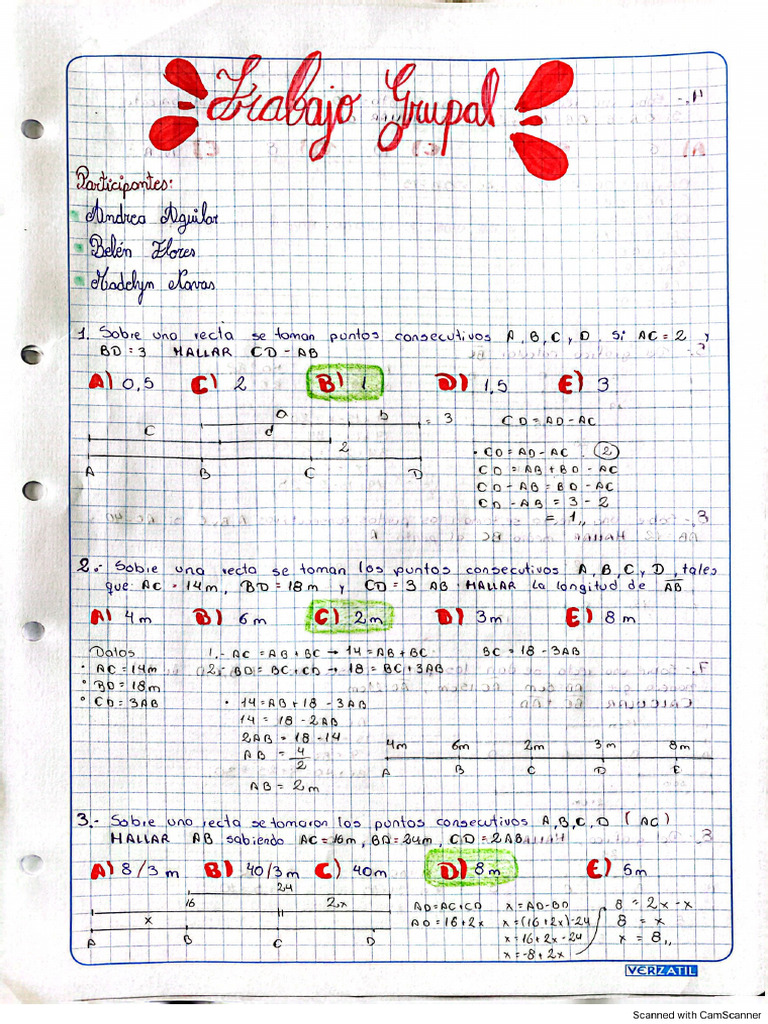 Trabajo Grupal
Participantes:
Andrea Aguilar
Belén Flores
Madelyn Navas
1. Sobre una recta se toman puntos consecutivos A, B, C, y D. Si AC = 2 y
BD = 3 HALLAR CD - AB
A) 0,5 C) 2 B) 1 D) 1,5 E) 3
a b = 3
c d 2
A B C D
CD = AD - AC
• CD = AD - AC (2)
CD = AB + BD - AC
CD - AB = BD - AC
CD - AB = 3 - 2
= 1,,
2.- Sobre una recta se toman los puntos consecutivos A, B, C, y D, tales
que AC = 14m, BD = 18m y CD = 3 AB. HALLAR la longitud de AB
A) 4m B) 6m C) 2m D) 3m E) 8m
Datos
• AC = 14m
• BD = 18m
• CD = 3AB
1.- AC = AB + BC → 14 = AB + BC
2.- BD = BC + CD → 18 = BC + 3AB
BC = 18 - 3AB
• 14 = AB + 18 - 3AB
14 = 18 - 2AB
2AB = 18 - 14
AB = 4/2
AB = 2m
4m 6m 2m 3m 8m
A B C D E
3.- Sobre una recta se tomaron los puntos consecutivos A, B, C, D (AC)
HALLAR AB sabiendo AC = 16m, BD = 24m, CD = 2AB
A) 8/3 m B) 40/3m C) 40m D) 8m E) 5m
24
16 2x
x
A B C D
AD = AC + CD
AD = 16 + 2x
x = AD - BD
x = (16 + 2x) - 24
x = 16 + 2x - 24
x = -8 + 2x
8 = 2x - x
8 = x
x = 8,,
VERZATIL
Scanned with CamScanner